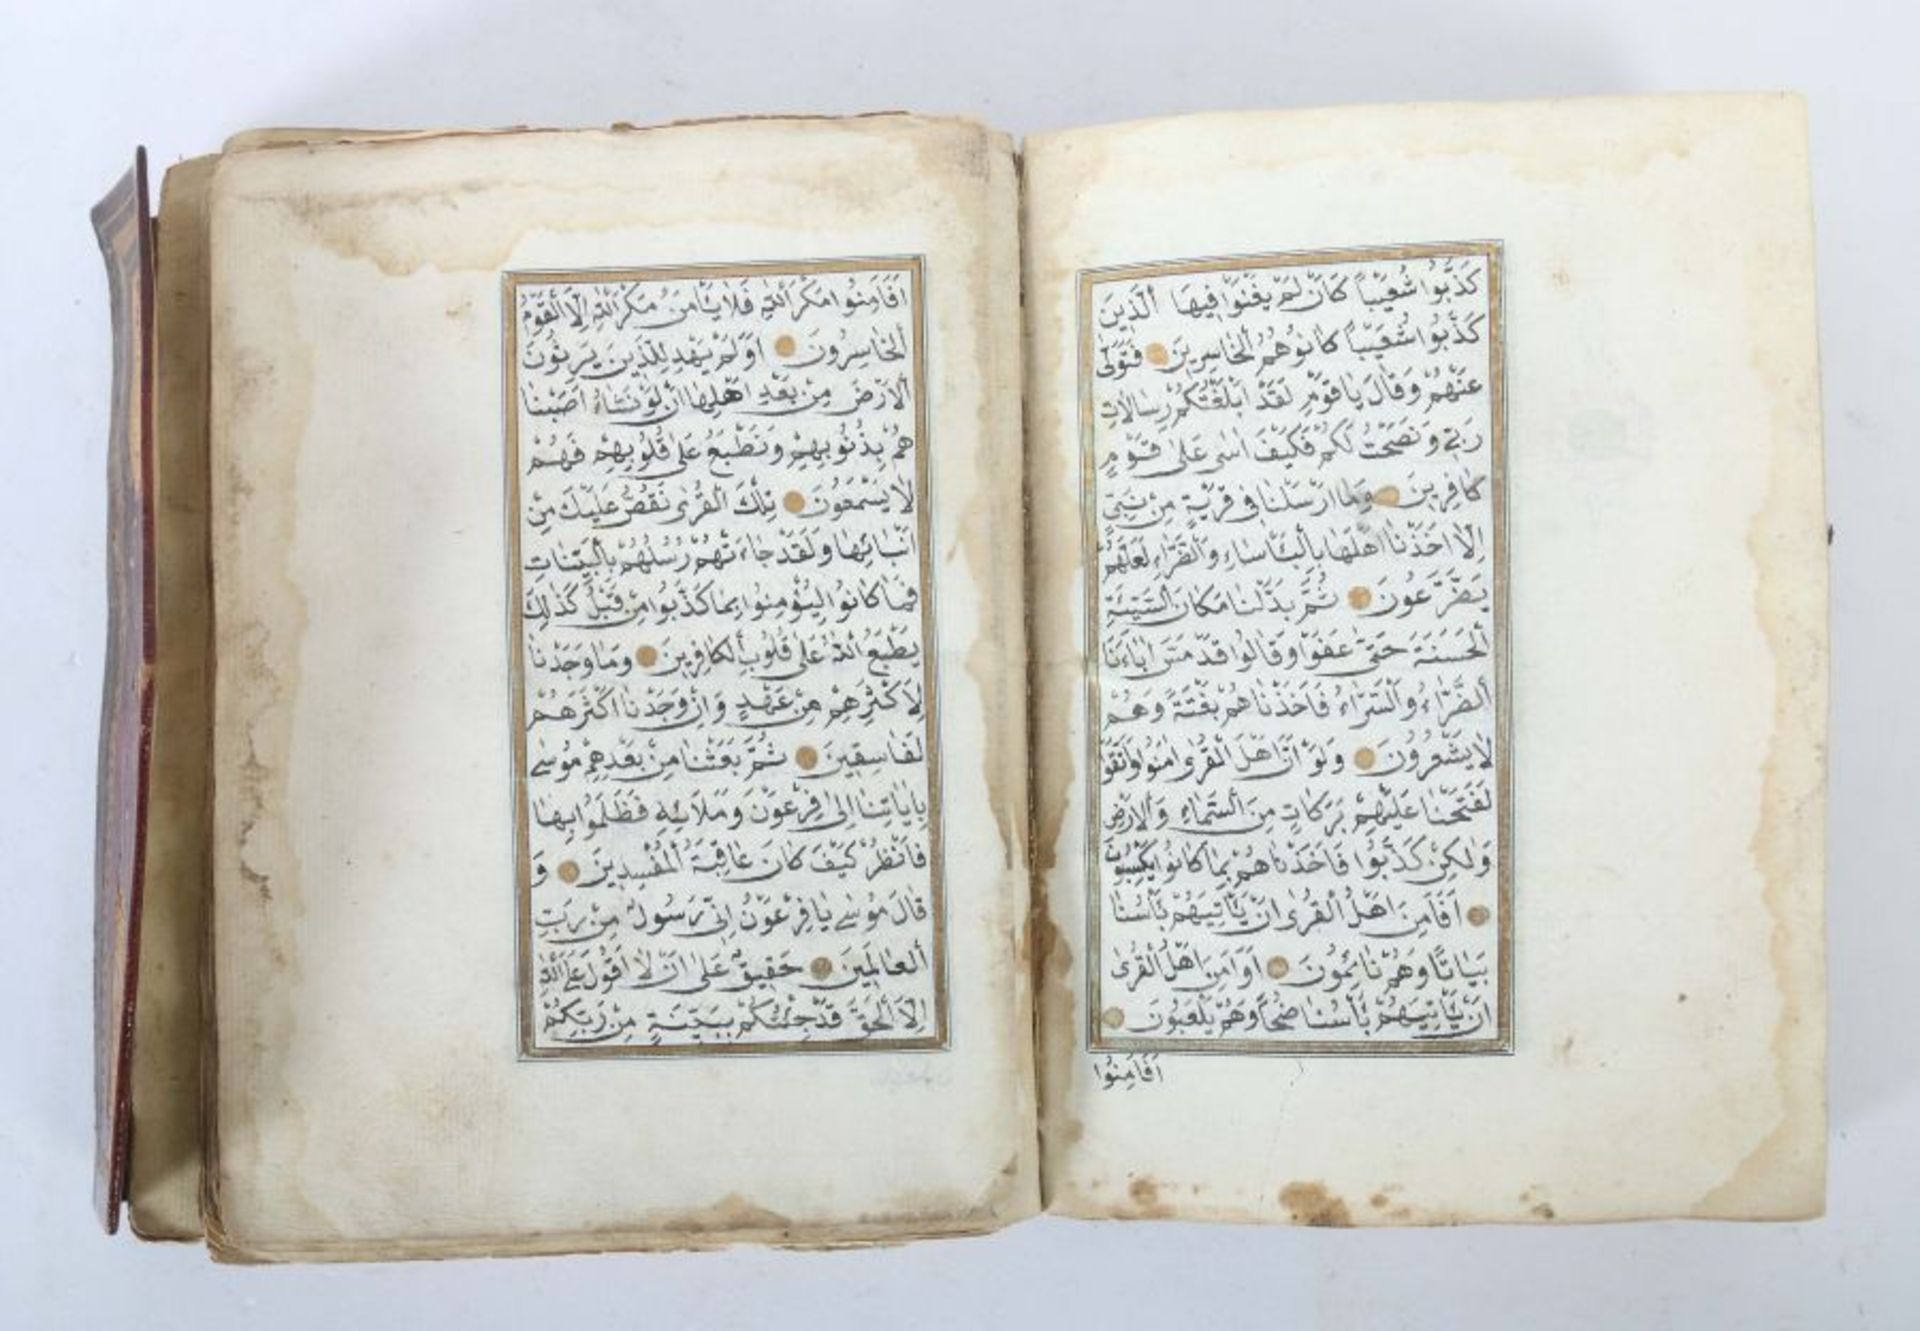 كَذَّبُوا شُعَيْباً كَانَ لَمْ يَغْنَوْا فِيهَا اَلَّذِينَ
كَذَّبُوا شُعَيْباً كَانُوا هُمُ الْخَاسِرِينَ فَتَوَلّٰى
عَنْهُمْ وَقَالَ يَاقَوْمِ لَقَدْ اَبْلَغْتُكُمْ رِسَالَاتِ
رَبِّي وَنَصَحْتُ لَكُمْ فَكَيْفَ اٰسٰى عَلٰى قَوْمٍ
كَافِرِينَ وَمَا اَرْسَلْنَا فِي قَرْيَةٍ مِنْ نَبِيٍّ
اِلَّا اَخَذْنَا اَهْلَهَا بِالْبَأْسَاءِ وَالضَّرَّاءِ لَعَلَّهُمْ
يَضَّرَّعُونَ ثُمَّ بَدَّلْنَا مَكَانَ السَّيِّئَةِ
الْحَسَنَةَ حَتّٰى عَفَوْا وَقَالُوا قَدْ مَسَّ اٰبَاءَنَا
الضَّرَّاءُ وَالسَّرَّاءُ فَاَخَذْنَاهُمْ بَغْتَةً وَهُمْ
لَا يَشْعُرُونَ وَلَوْ اَنَّ اَهْلَ الْقُرٰى اٰمَنُوا وَاتَّقَوْا
لَفَتَحْنَا عَلَيْهِمْ بَرَكَاتٍ مِنَ السَّمَاءِ وَالْاَرْضِ
وَلٰكِنْ كَذَّبُوا فَاَخَذْنَاهُمْ بِمَا كَانُوا يَكْسِبُونَ
اَفَاَمِنَ اَهْلُ الْقُرٰى اَنْ يَأْتِيَهُمْ بَأْسُنَا
بَيَاتًا وَهُمْ نَائِمُونَ اَوَاَمِنَ اَهْلُ الْقُرٰى
اَنْ يَأْتِيَهُمْ بَأْسُنَا ضُحًى وَهُمْ يَلْعَبُونَ
اَفَاَمِنُوا
اَفَاَمِنُوا مَكْرَ اللّٰهِ فَلَا يَأْمَنُ مَكْرَ اللّٰهِ اِلَّا الْقَوْمُ
الْخَاسِرُونَ اَوَلَمْ يَهْدِ لِلَّذِينَ يَرِثُونَ
الْاَرْضَ مِنْ بَعْدِ اَهْلِهَا اَنْ لَوْ نَشَاءُ اَصَبْنَا
هُمْ بِذُنُوبِهِمْ وَنَطْبَعُ عَلٰى قُلُوبِهِمْ فَهُمْ
لَا يَسْمَعُونَ تِلْكَ الْقُرٰى نَقُصُّ عَلَيْكَ مِنْ
اَنْبَائِهَا وَلَقَدْ جَاءَتْهُمْ رُسُلُهُمْ بِالْبَيِّنَاتِ
فَمَا كَانُوا لِيُؤْمِنُوا بِمَا كَذَّبُوا مِنْ قَبْلُ كَذٰلِكَ
يَطْبَعُ اللّٰهُ عَلٰى قُلُوبِ الْكَافِرِينَ وَمَا وَجَدْنَا
لِاَكْثَرِهِمْ مِنْ عَهْدٍ وَاِنْ وَجَدْنَا اَكْثَرَهُمْ
لَفَاسِقِينَ ثُمَّ بَعَثْنَا مِنْ بَعْدِهِمْ مُوسٰى
بِاٰيَاتِنَا اِلٰى فِرْعَوْنَ وَمَلَائِهِ فَظَلَمُوا بِهَا
فَانْظُرْ كَيْفَ كَانَ عَاقِبَةُ الْمُفْسِدِينَ وَ
قَالَ مُوسٰى يَافِرْعَوْنُ اِنِّي رَسُولٌ مِنْ رَبِّ
الْعَالَمِينَ حَقِيقٌ عَلٰى اَنْ لَا اَقُولَ عَلَى اللّٰهِ
اِلَّا الْحَقَّ قَدْ جِئْتُكُمْ بِبَيِّنَةٍ مِنْ رَبِّكُمْ